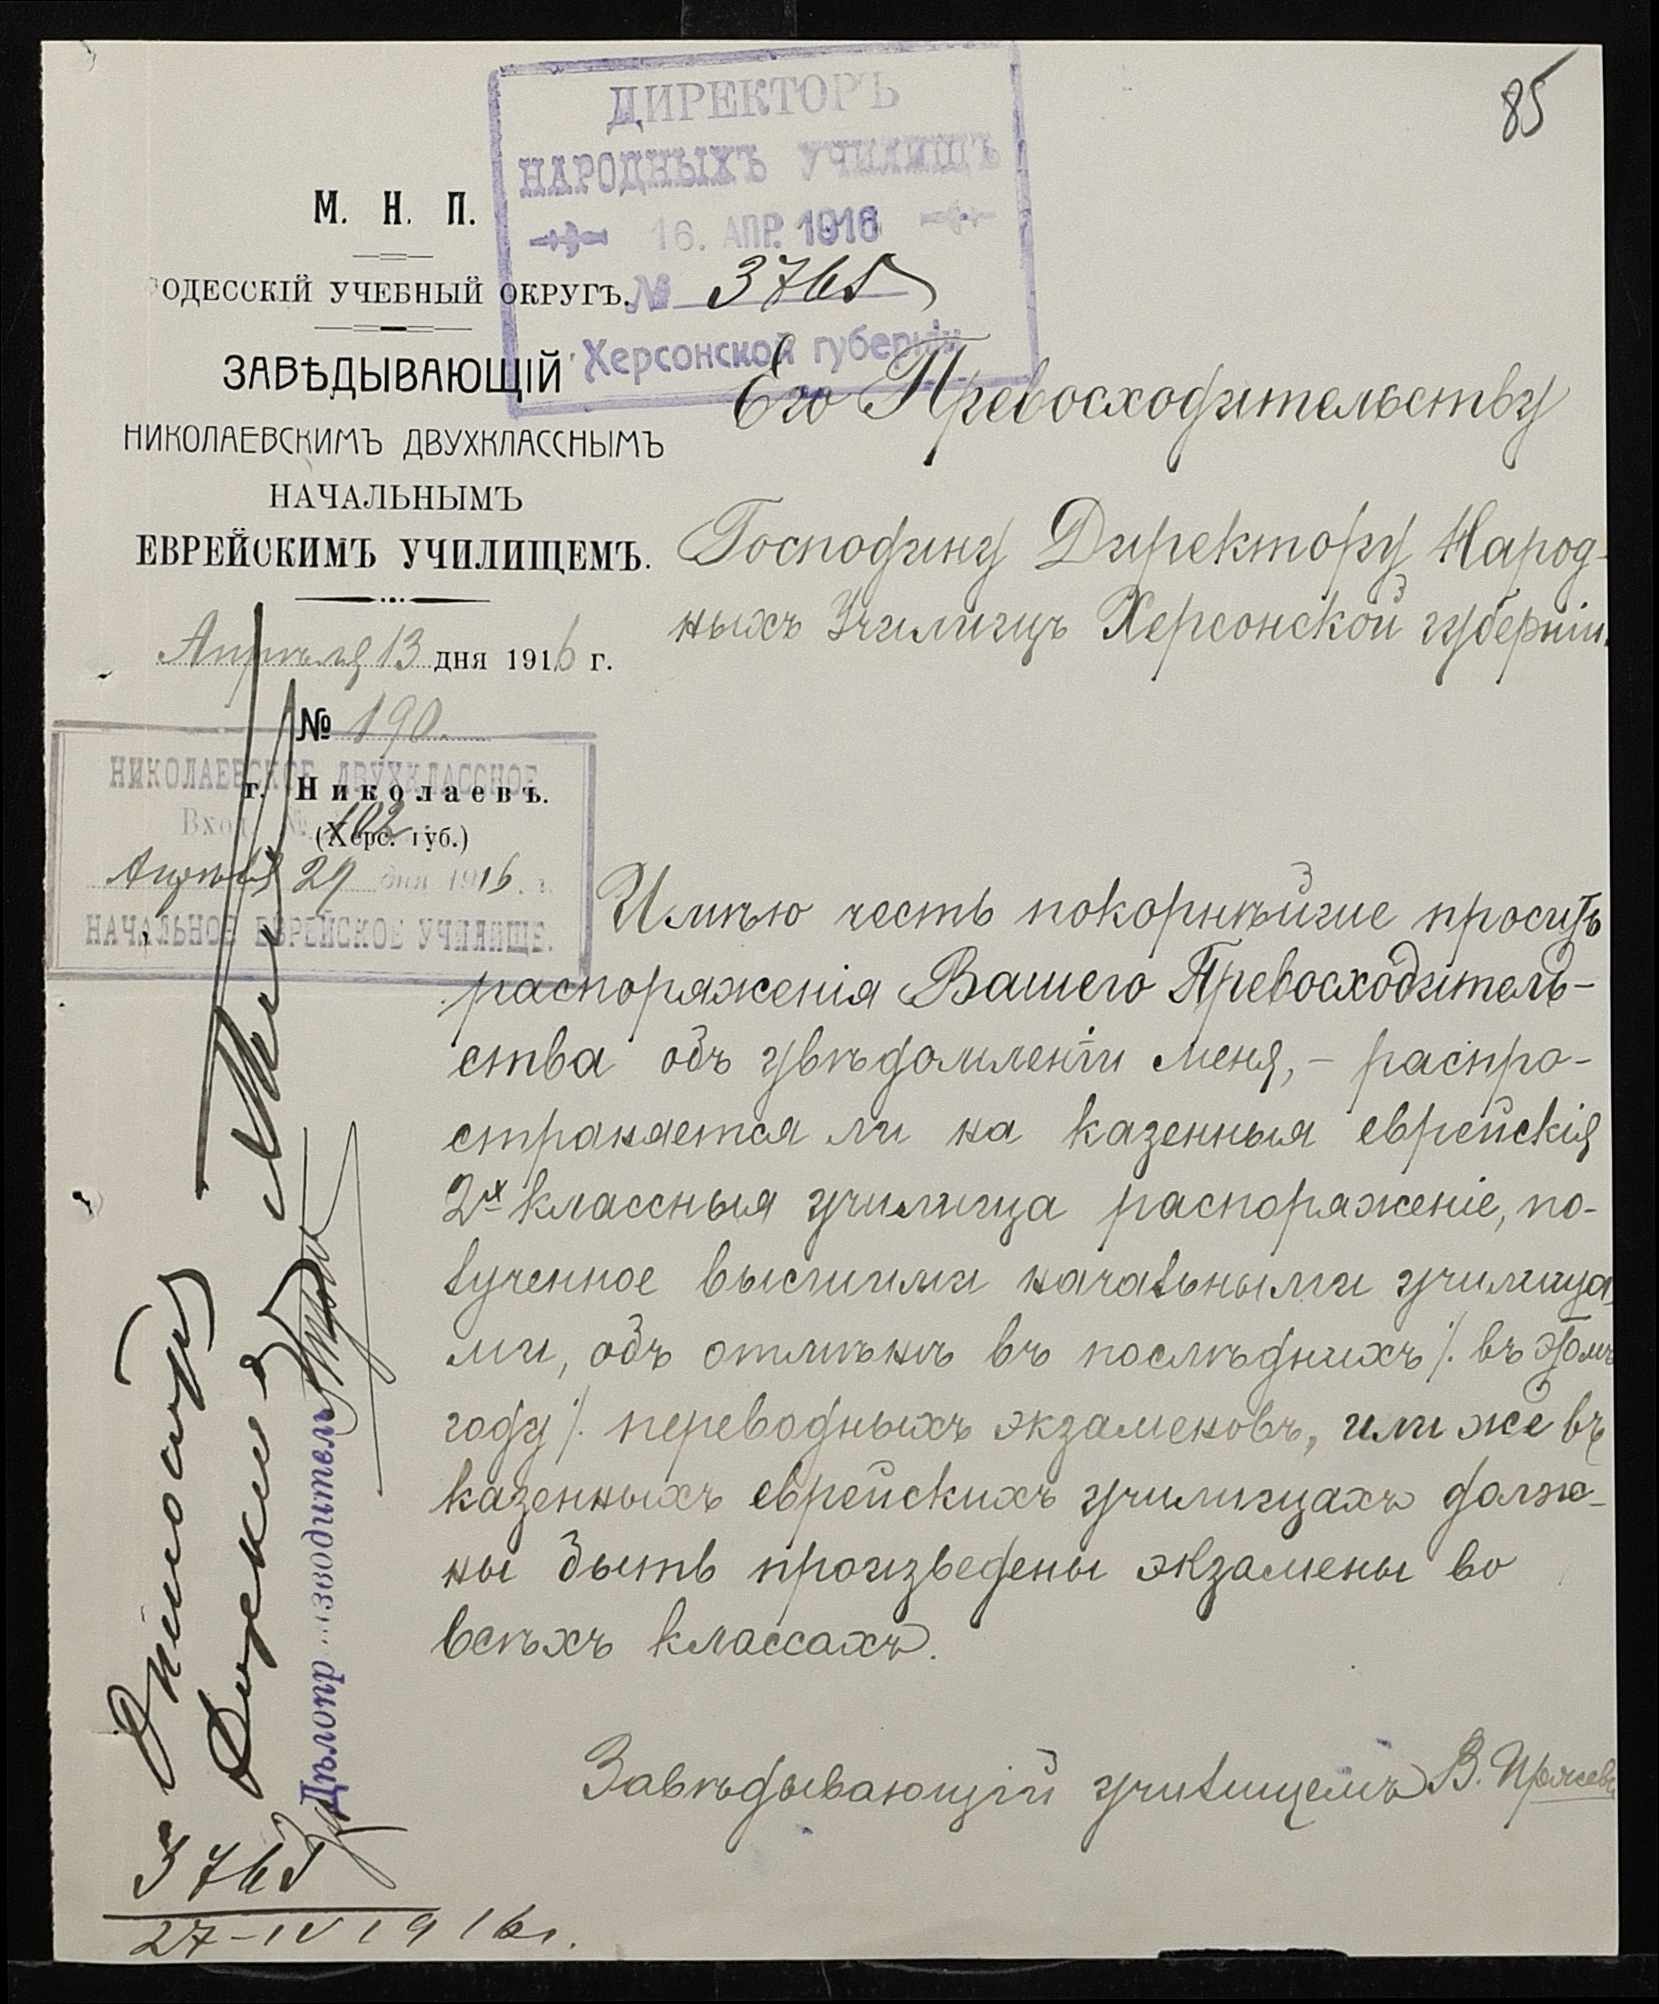 85
ДИРЕКТОРЪ
НАРОДНЫХЪ УЧИЛИЩЪ
16. АПР. 1916
№ 3765
Херсонской губерніи
М. Н. П.
ОДЕССКІЙ УЧЕБНЫЙ ОКРУГЪ.
ЗАВѢДЫВАЮЩІЙ
НИКОЛАЕВСКИМЪ ДВУХКЛАССНЫМЪ
НАЧАЛЬНЫМЪ
ЕВРЕЙСКИМЪ УЧИЛИЩЕМЪ.
Апрѣля 13 дня 1916 г.
№ 190.
г. Николаевъ.
(Херс. губ.)
НИКОЛАЕВСКОЕ ДВУХКЛАССНОЕ
Вход. № 102
Апрѣля 29 дня 1916 г.
НАЧАЛЬНОЕ ЕВРЕЙСКОЕ УЧИЛИЩЕ.
Его Превосходительству
Господину Директору Народ-
ныхъ Училищъ Херсонской губерніи.
Имѣю честь покорнѣйше просить
распоряженія Вашего Превосходитель-
ства объ увѣдомленіи меня, – распро-
страняется ли на казенныя еврейскія
2х классныя училища распоряженіе, по-
лученное высшими начальными училища-
ми, объ отмѣнѣ въ послѣднихъ /. въ этомъ
году /. переводныхъ экзаменовъ, или же въ
казенныхъ еврейскихъ училищахъ долж-
ны быть произведены экзамены во
всѣхъ классахъ.
Завѣдывающій училищемъ В.
Дѣлопроизводитель
3765
27-IV 1916 г.